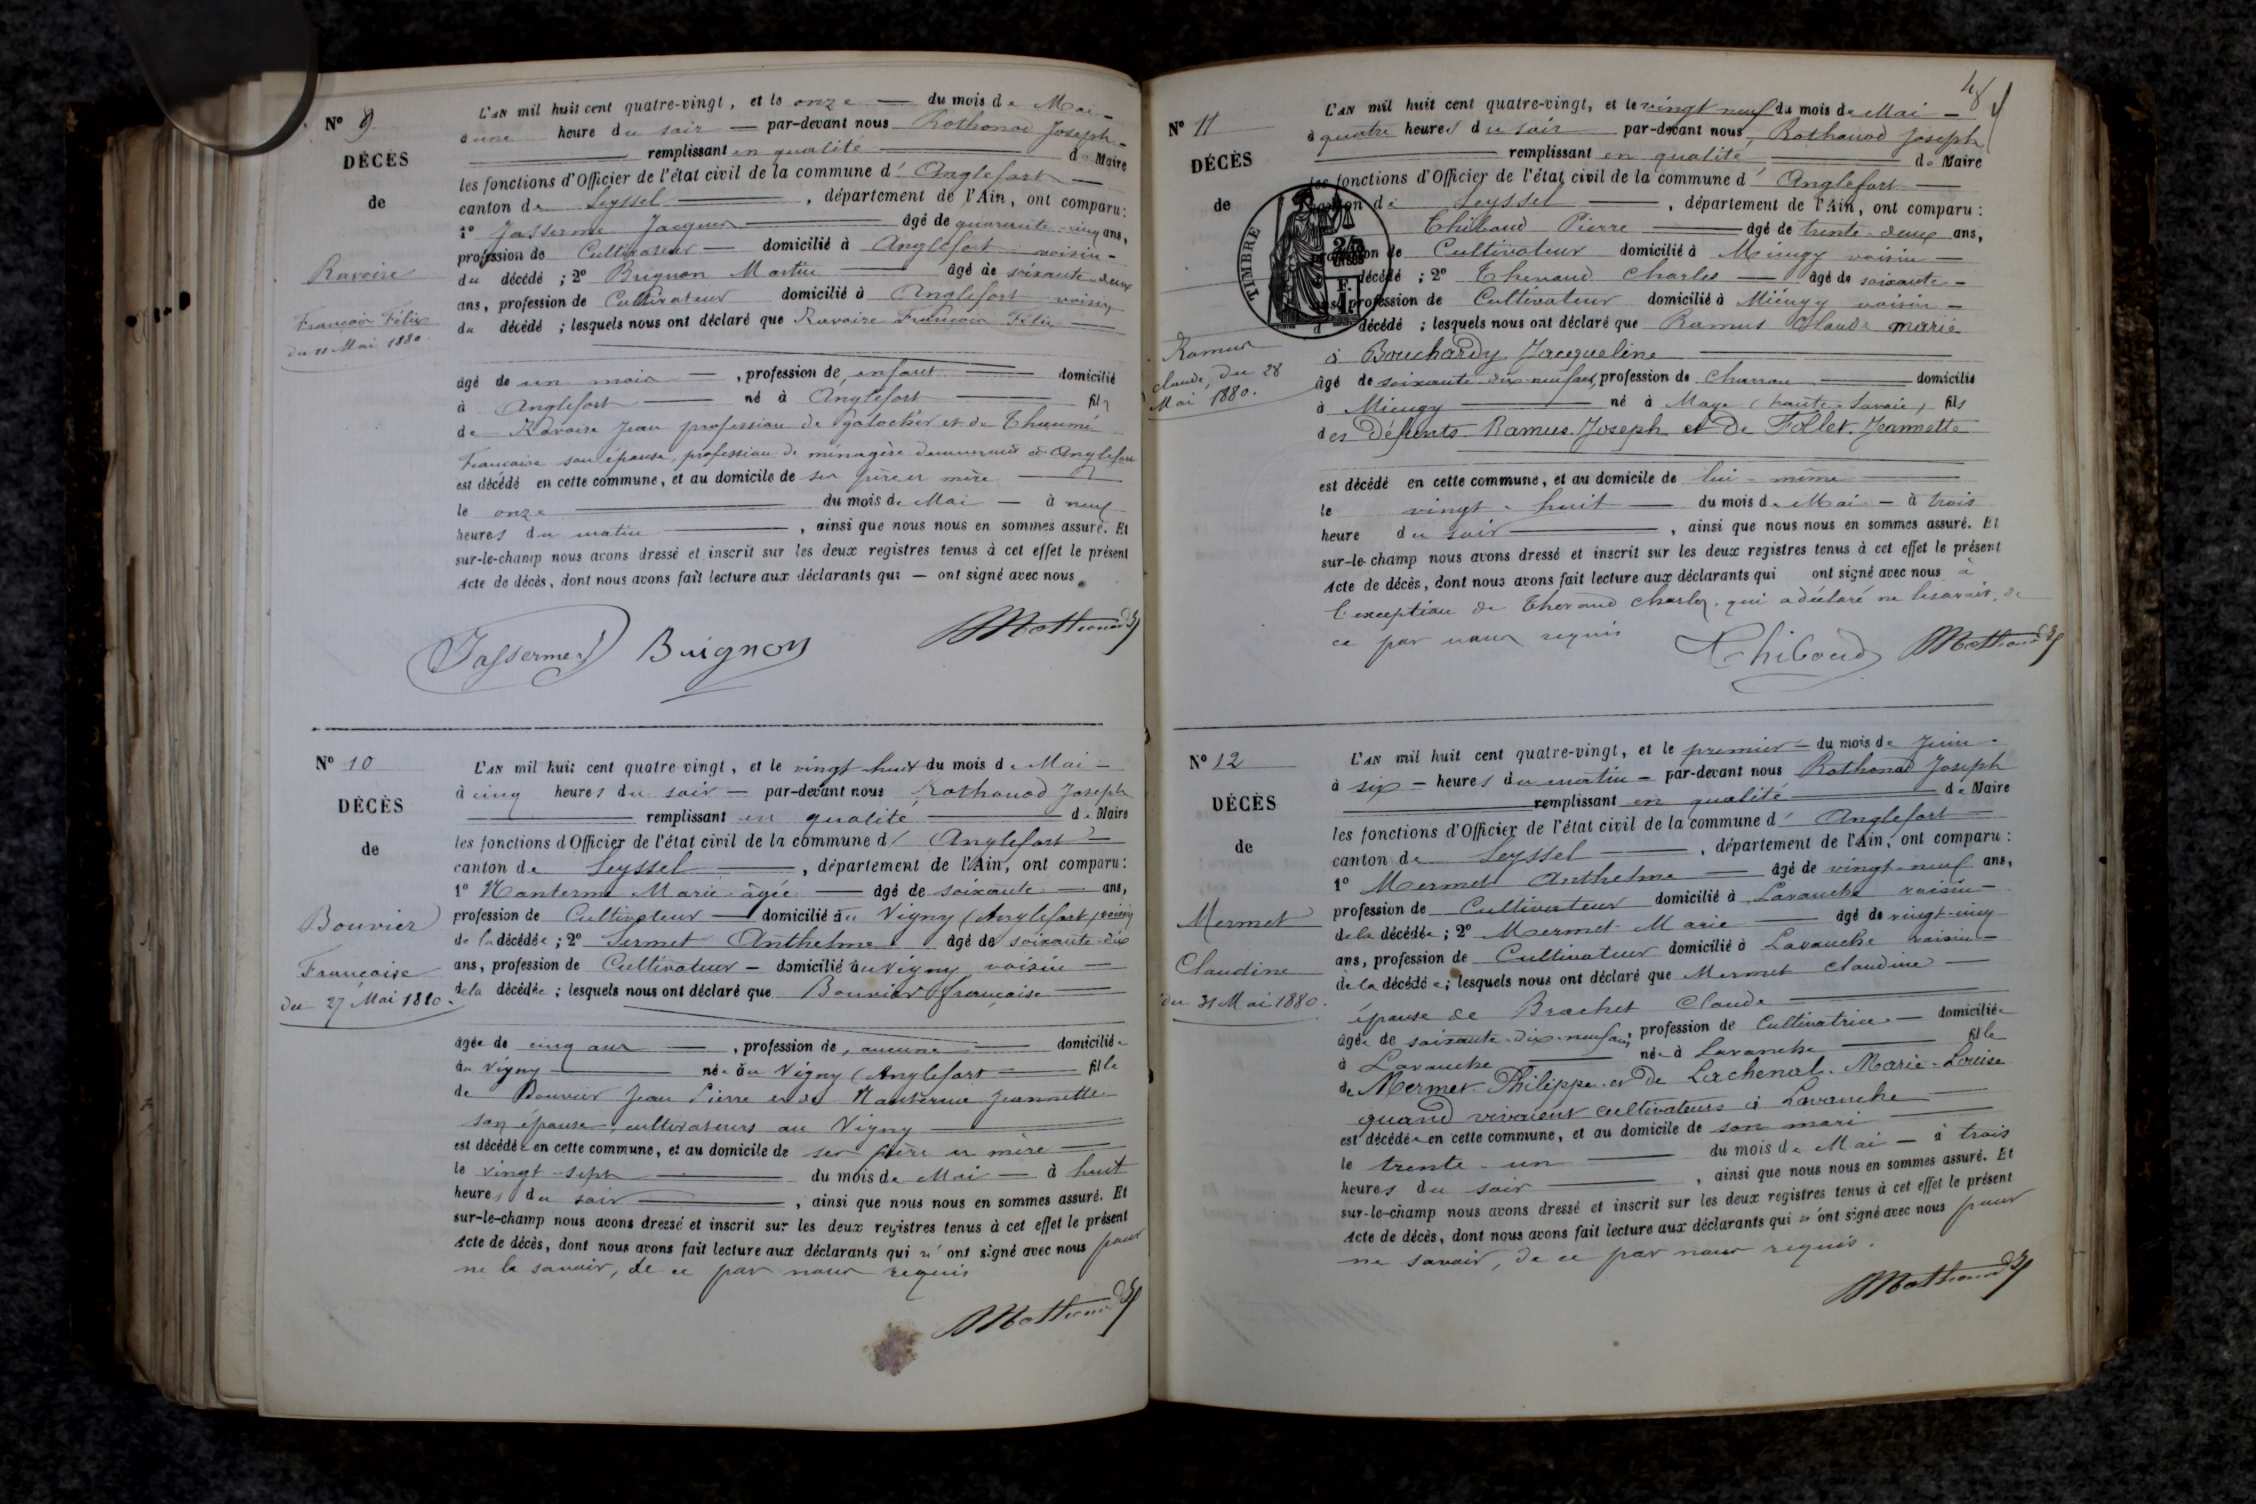 Nº 9
DÉCÈS
de
Ravoire
François Félix
du 11 Mai 1880.
L'AN mil huit cent quatre-vingt, et le onze — du mois de Mai —
à une heure du soir — par-devant nous Rothonod Joseph —
remplissant en qualité de Maire
les fonctions d'Officier de l'état civil de la commune d' Anglefort —
canton de Seyssel — , département de l'Ain, ont comparu :
1º Jasserme Jacques — âgé de quarante-cinq ans,
profession de Cultivateur — domicilié à Anglefort voisin —
du décédé ; 2º Brignon Martin — âgé de soixante-deux
ans, profession de Cultivateur domicilié à Anglefort voisin
du décédé ; lesquels nous ont déclaré que Ravoire François Félix —
âgé de un mois — , profession de, enfant — domicilié
à Anglefort — né à Anglefort — fils
de Ravoire Jean profession de galocher et de
Françoise son épouse, profession de ménagère demeurant à Anglefort
est décédé en cette commune, et au domicile de ses père et mère —
le onze — du mois de Mai — à neuf
heures du matin — , ainsi que nous nous en sommes assuré. Et
sur-le-champ nous avons dressé et inscrit sur les deux registres tenus à cet effet le présent
Acte de décès, dont nous avons fait lecture aux déclarants qui — ont signé avec nous.
Jasserme J Buignon Rothonod J
Nº 10
DÉCÈS
de
Bouvier
Françoise
du 27 Mai 1880.
L'AN mil huit cent quatre-vingt, et le vingt-huit du mois de Mai —
à cinq heures du soir — par-devant nous Rothonod Joseph
remplissant en qualité de Maire
les fonctions d'Officier de l'état civil de la commune d' Anglefort —
canton de Seyssel — , département de l'Ain, ont comparu :
1º Nanterme Marie âgée — âgé de soixante — ans,
profession de Cultivateur — domicilié au Vigny (Anglefort) voisin
de la décédée ; 2º Sermet Anthelme âgé de soixante-dix
ans, profession de Cultivateur — domicilié au Vigny voisin —
de la décédée ; lesquels nous ont déclaré que Bouvier françoise —
âgée de cinq ans — , profession de, aucune — domiciliée
au Vigny — née au Vigny (Anglefort — fille
de Bouvier Jean Pierre et de Nanterme Jeannette
son épouse, cultivateurs au Vigny —
est décédée en cette commune, et au domicile de ses père et mère —
le vingt-sept — du mois de Mai — à huit
heures du soir — , ainsi que nous nous en sommes assuré. Et
sur-le-champ nous avons dressé et inscrit sur les deux registres tenus à cet effet le présent
Acte de décès, dont nous avons fait lecture aux déclarants qui n'ont signé avec nous pour
ne le savoir, de ce par nous requis
Rothonod J
48
Nº 11
DÉCÈS
de
Ramus
Claude, du 28
Mai 1880.
TIMBRE
L'AN mil huit cent quatre-vingt, et le vingt neuf du mois de Mai —
à quatre heures du soir par-devant nous Rothonod Joseph
remplissant en qualité de Maire
les fonctions d'Officier de l'état civil de la commune d' Anglefort —
canton de Seyssel — , département de l'Ain, ont comparu :
Thibaud Pierre — âgé de trente-deux ans,
profession de Cultivateur domicilié à Miengy voisin —
décédé ; 2º Thevand Charles — âgé de soixante —
ans, profession de Cultivateur domicilié à Miengy voisin —
d décédé ; lesquels nous ont déclaré que Ramus Claude marié
à Bouchardy Jacqueline —
âgé de soixante-dix-neuf ans, profession de Charron — domicilié
à Miengy — né à (haute-Savoie), fils
des Défunts Ramus Joseph et De Follet Jeannette
est décédé en cette commune, et au domicile de lui-même —
le vingt-huit — du mois de Mai — à trois
heure du soir — , ainsi que nous nous en sommes assuré. Et
sur-le-champ nous avons dressé et inscrit sur les deux registres tenus à cet effet le présent
Acte de décès, dont nous avons fait lecture aux déclarants qui ont signé avec nous à
l'exception de Thevand Charles, qui a déclaré ne le savoir, de
ce par nous requis
Thiboud Rothonod J
Nº 12
DÉCÈS
de
Mermet
Claudine
du 31 Mai 1880.
L'AN mil huit cent quatre-vingt, et le premier — du mois de Juin —
à six — heures du matin — par-devant nous Rothonod Joseph
remplissant en qualité de Maire
les fonctions d'Officier de l'état civil de la commune d' Anglefort —
canton de Seyssel — , département de l'Ain, ont comparu :
1º Mermet Anthelme — âgé de vingt-neuf ans,
profession de Cultivateur domicilié à Lavanche voisin —
de la décédée ; 2º Mermet Marie — âgé de vingt-cinq
ans, profession de Cultivateur domicilié à Lavanche voisin —
de la décédée ; lesquels nous ont déclaré que Mermet Claudine —
épouse de Brachet Claude —
âgée de soixante-dix-neuf ans, profession de Cultivatrice — domiciliée
à Lavanche — née à Lavanche — fille
de Mermet Philippe et de Lachenal Marie-Louise
quand vivaient cultivateurs à Lavanche —
est décédée en cette commune, et au domicile de son mari —
le trente-un — du mois de Mai — à trois
heures du soir — , ainsi que nous nous en sommes assuré. Et
sur-le-champ nous avons dressé et inscrit sur les deux registres tenus à cet effet le présent
Acte de décès, dont nous avons fait lecture aux déclarants qui n'ont signé avec nous pour
ne savoir, de ce par nous requis.
Rothonod J